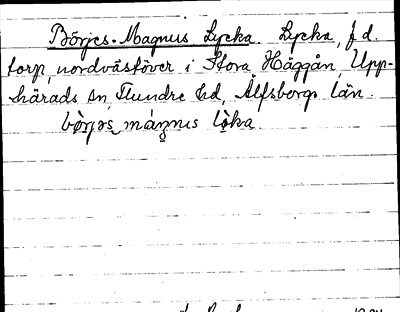 Börjes-Magnus Lycka. Lycka, f d.
torp, nordväst över i Stora Häggån, Upp-
härads sn, Flundre hd, Älfsborgs län.
bòrjəs máŋnus lòka